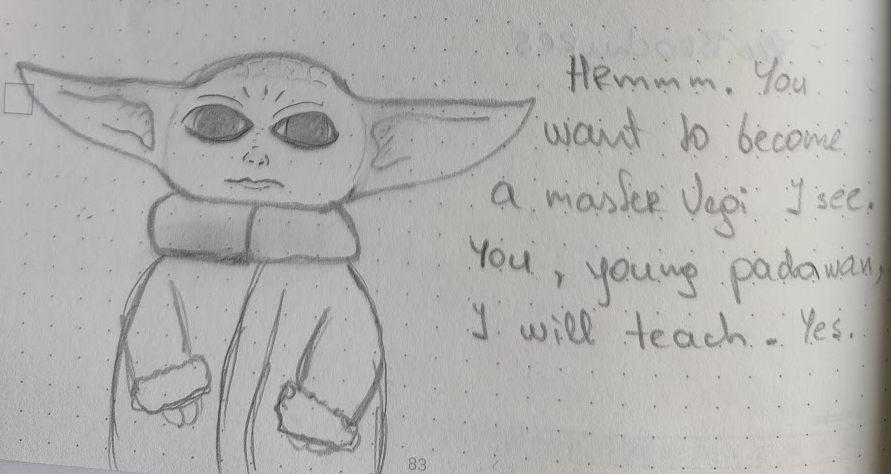 Hemmm. You
want to become
a master Vegi I see.
You, young padawan,
I will teach. Yes.
83